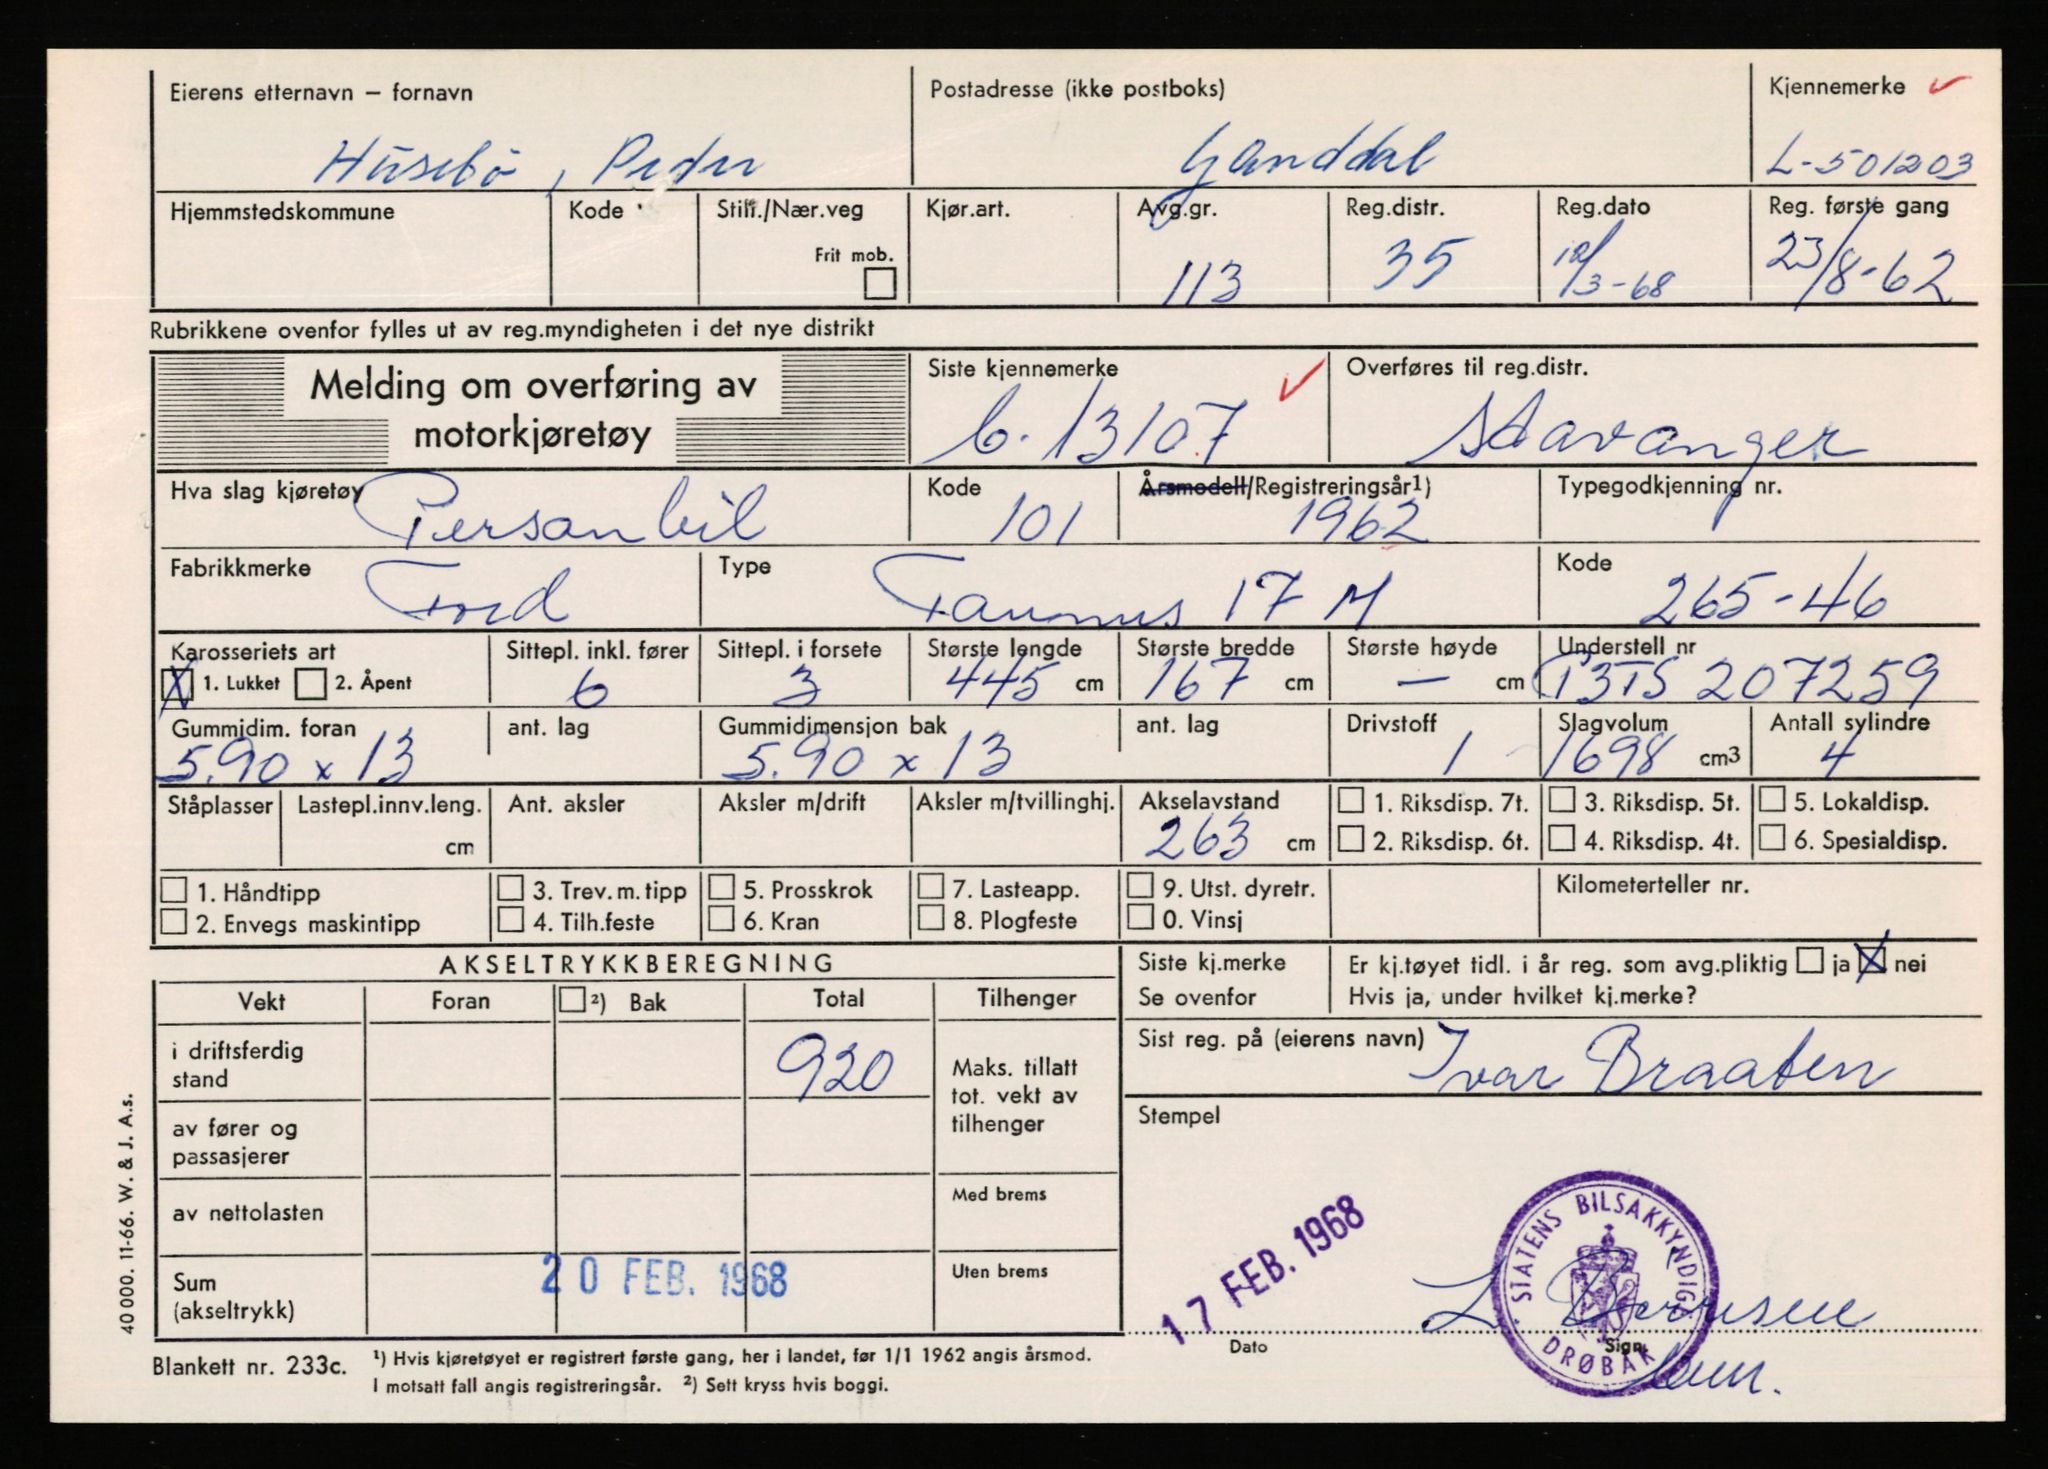 Eierens etternavn – fornavn
Postadresse (ikke postboks)
Kjennemerke
Husebö, Peder
Ganddal
L-501203
Hjemmstedskommune
Kode
Still./Nær.veg
Frit mob.
Kjør.art.
Avg.gr.
113
Reg.distr.
35
Reg.dato
12/3-68
Reg. første gang
23/8-62
Rubrikkene ovenfor fylles ut av reg.myndigheten i det nye distrikt
Melding om overføring av
motorkjøretøy
Siste kjennemerke
Overføres til reg.distr.
13107
Stavanger
Hva slag kjøretøy
Personbil
Kode
101
Årsmodell/Registreringsår1)
1962
Typegodkjenning nr.
Fabrikkmerke
Ford
Type
Taunus 17 M
Kode
265-46
Karosseriets art
1. Lukket 2. Åpent
Sittepl. inkl. fører
6
Sittepl. i forsete
3
Største lengde
445 cm
Største bredde
167 cm
Største høyde
— cm
Understell nr
P3TS 207259
Gummidim. foran
5.90 x 13
ant. lag
Gummidimensjon bak
5.90 x 13
ant. lag
Drivstoff
1
Slagvolum
1698 cm3
Antall sylindre
4
Ståplasser
Lastepl.innv.leng.
cm
Ant. aksler
Aksler m/drift
Aksler m/tvillinghj.
Akselavstand
263 cm
1. Riksdisp. 7t.
2. Riksdisp. 6t.
3. Riksdisp. 5t.
4. Riksdisp. 4t.
5. Lokaldisp.
6. Spesialdisp.
1. Håndtipp
2. Envegs maskintipp
3. Trev. m. tipp
4. Tilh.feste
5. Prosskrok
6. Kran
7. Lasteapp.
8. Plogfeste
9. Utst. dyretr.
0. Vinsj
Kilometerteller nr.
AKSELTRYKKBEREGNING
Siste kj.merke
Se ovenfor
Er kj.tøyet tidl. i år reg. som avg.pliktig ja nei
Hvis ja, under hvilket kj.merke?
Vekt
Foran
2) Bak
Total
Tilhenger
i driftsferdig
stand
920
Maks. tillatt
tot. vekt av
tilhenger
Sist reg. på (eierens navn)
Ivar Braaten
av fører og
passasjerer
Stempel
av nettolasten
Med brems
Sum
(akseltrykk)
Uten brems
20 FEB. 1968
17 FEB. 1968
STATENS BILSAKKYNDIGE
DRØBAK
Dato
Sign.
40 000. 11-66. W. & J. A.s.
Blankett nr. 233c.
1) Hvis kjøretøyet er registrert første gang, her i landet, før 1/1 1962 angis årsmod.
I motsatt fall angis registreringsår. 2) Sett kryss hvis boggi.